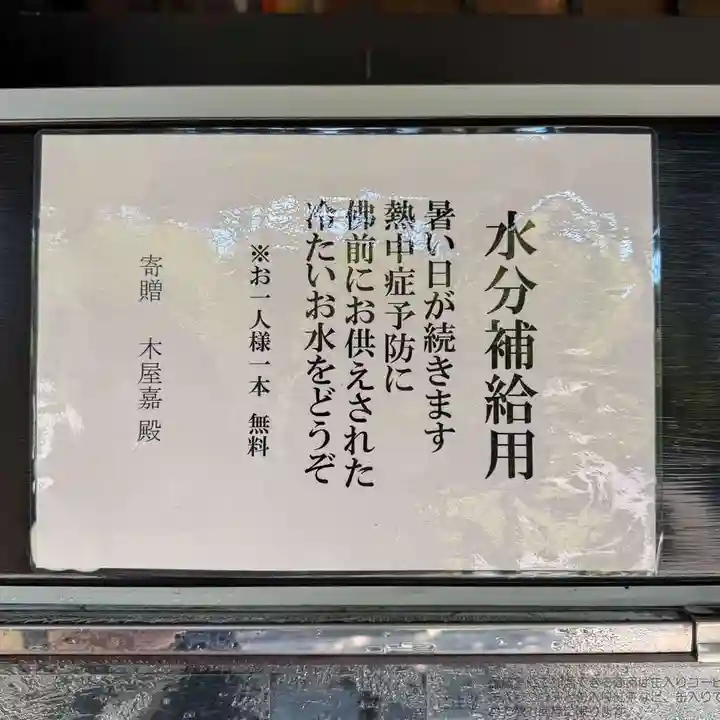 水分補給用
暑い日が続きます
熱中症予防に
佛前にお供えされた
冷たいお水をどうぞ
※お一人様一本 無料
寄贈 木屋嘉殿